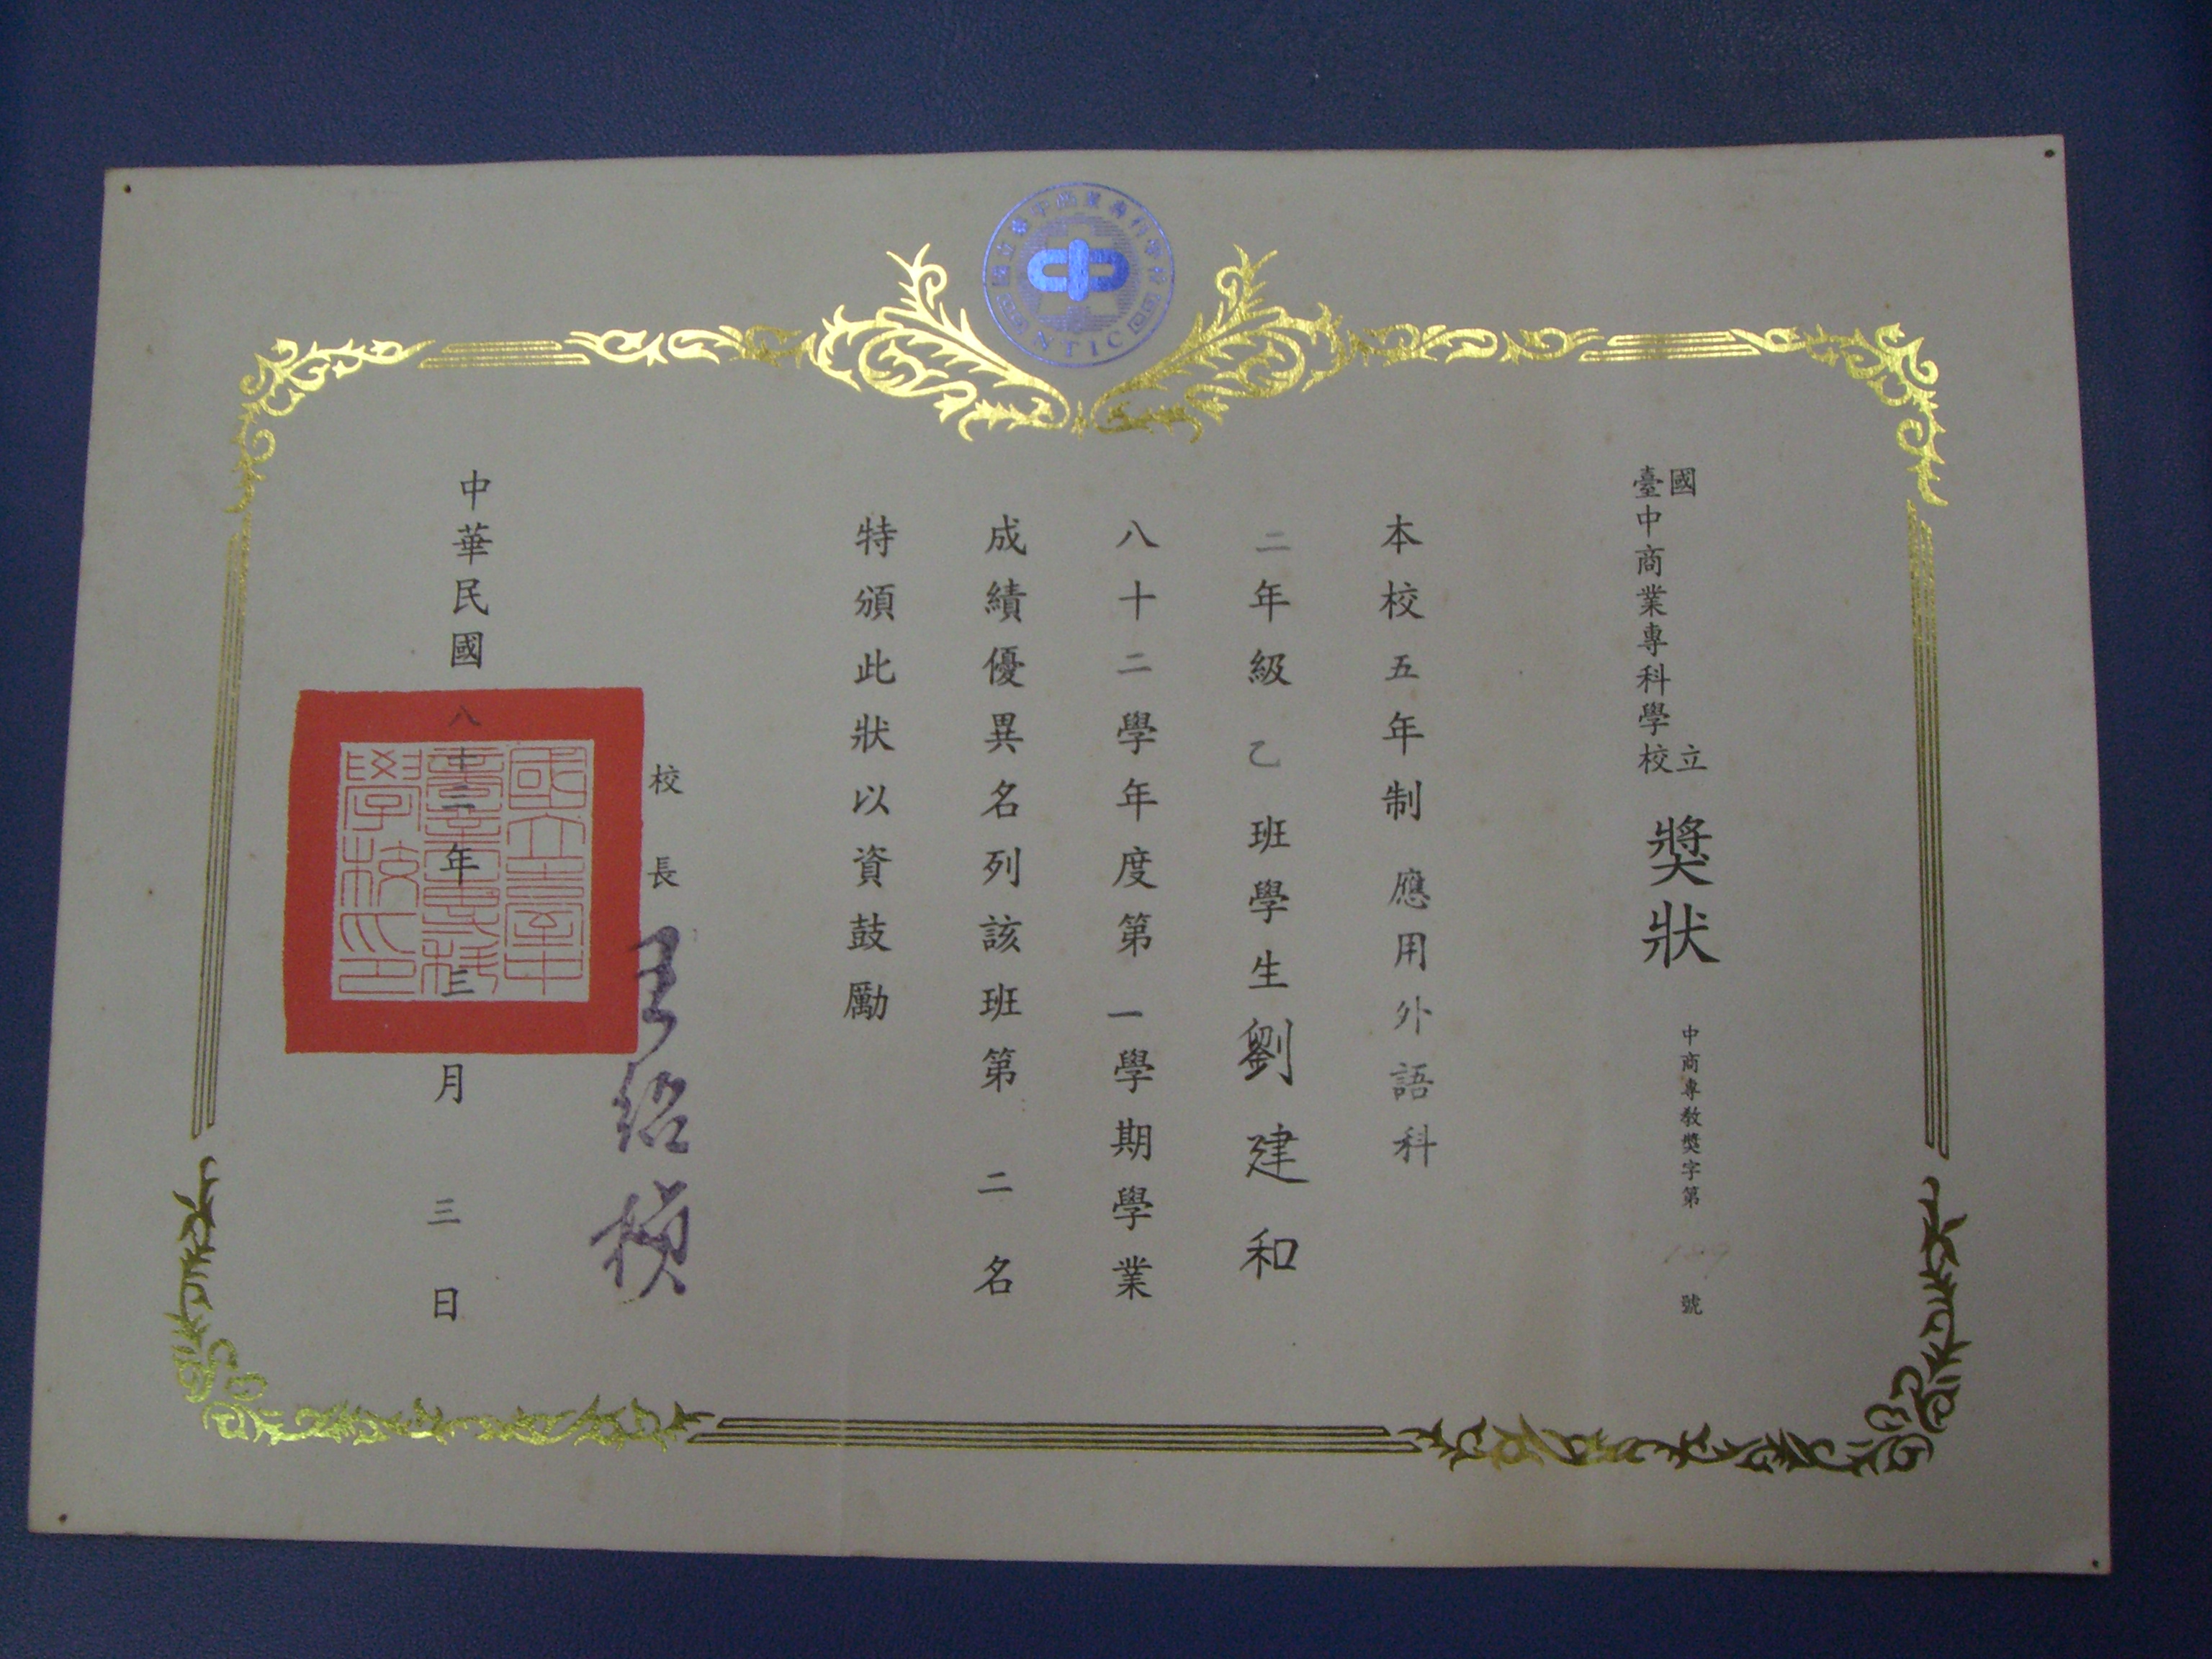 國立臺中商業專科學校
NTIC
國立臺中商業專科學校獎狀
中商專教獎字第 號
本校五年制應用外語科
二年級乙班學生劉建和
八十二學年度第一學期學業
成績優異名列該班第二名
特頒此狀以資鼓勵
校長王紹楨
中華民國八十三年三月三日